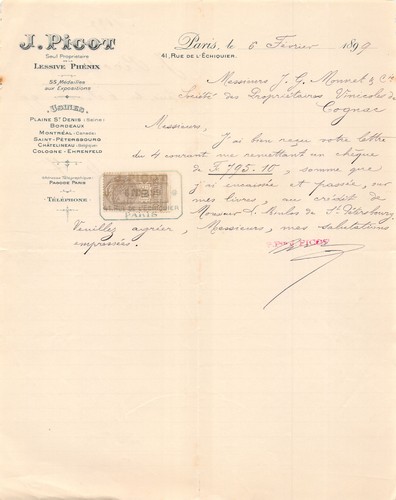 J. PICOT
Seul Propriétaire
DE LA
LESSIVE PHÉNIX
55 Médailles
aux Expositions
USINES
PLAINE St DENIS (Seine)
BORDEAUX
MONTRÉAL (Canada)
SAINT-PÉTERSBOURG
CHÂTELINEAU (Belgique)
COLOGNE-EHRENFELD
Adresse Télégraphique:
PAGODE PARIS
TÉLÉPHONE
Paris, le 6 Février 1899
41, RUE DE L'ÉCHIQUIER.
Messieurs J. G. Monnet & Cie
Société des Propriétaires Vinicoles de
Cognac
Messieurs,
J'ai bien reçu votre lettre
du 4 courant me remettant un chèque
de Fr 795.10, somme que
j'ai encaissée et passée, sur
mes livres, au crédit de
Monsieur de St Pétersbourg.
Veuillez agréer, Messieurs, mes salutations
empressées.
RUE DE L'ÉCHIQUIER
PARIS
PICOT